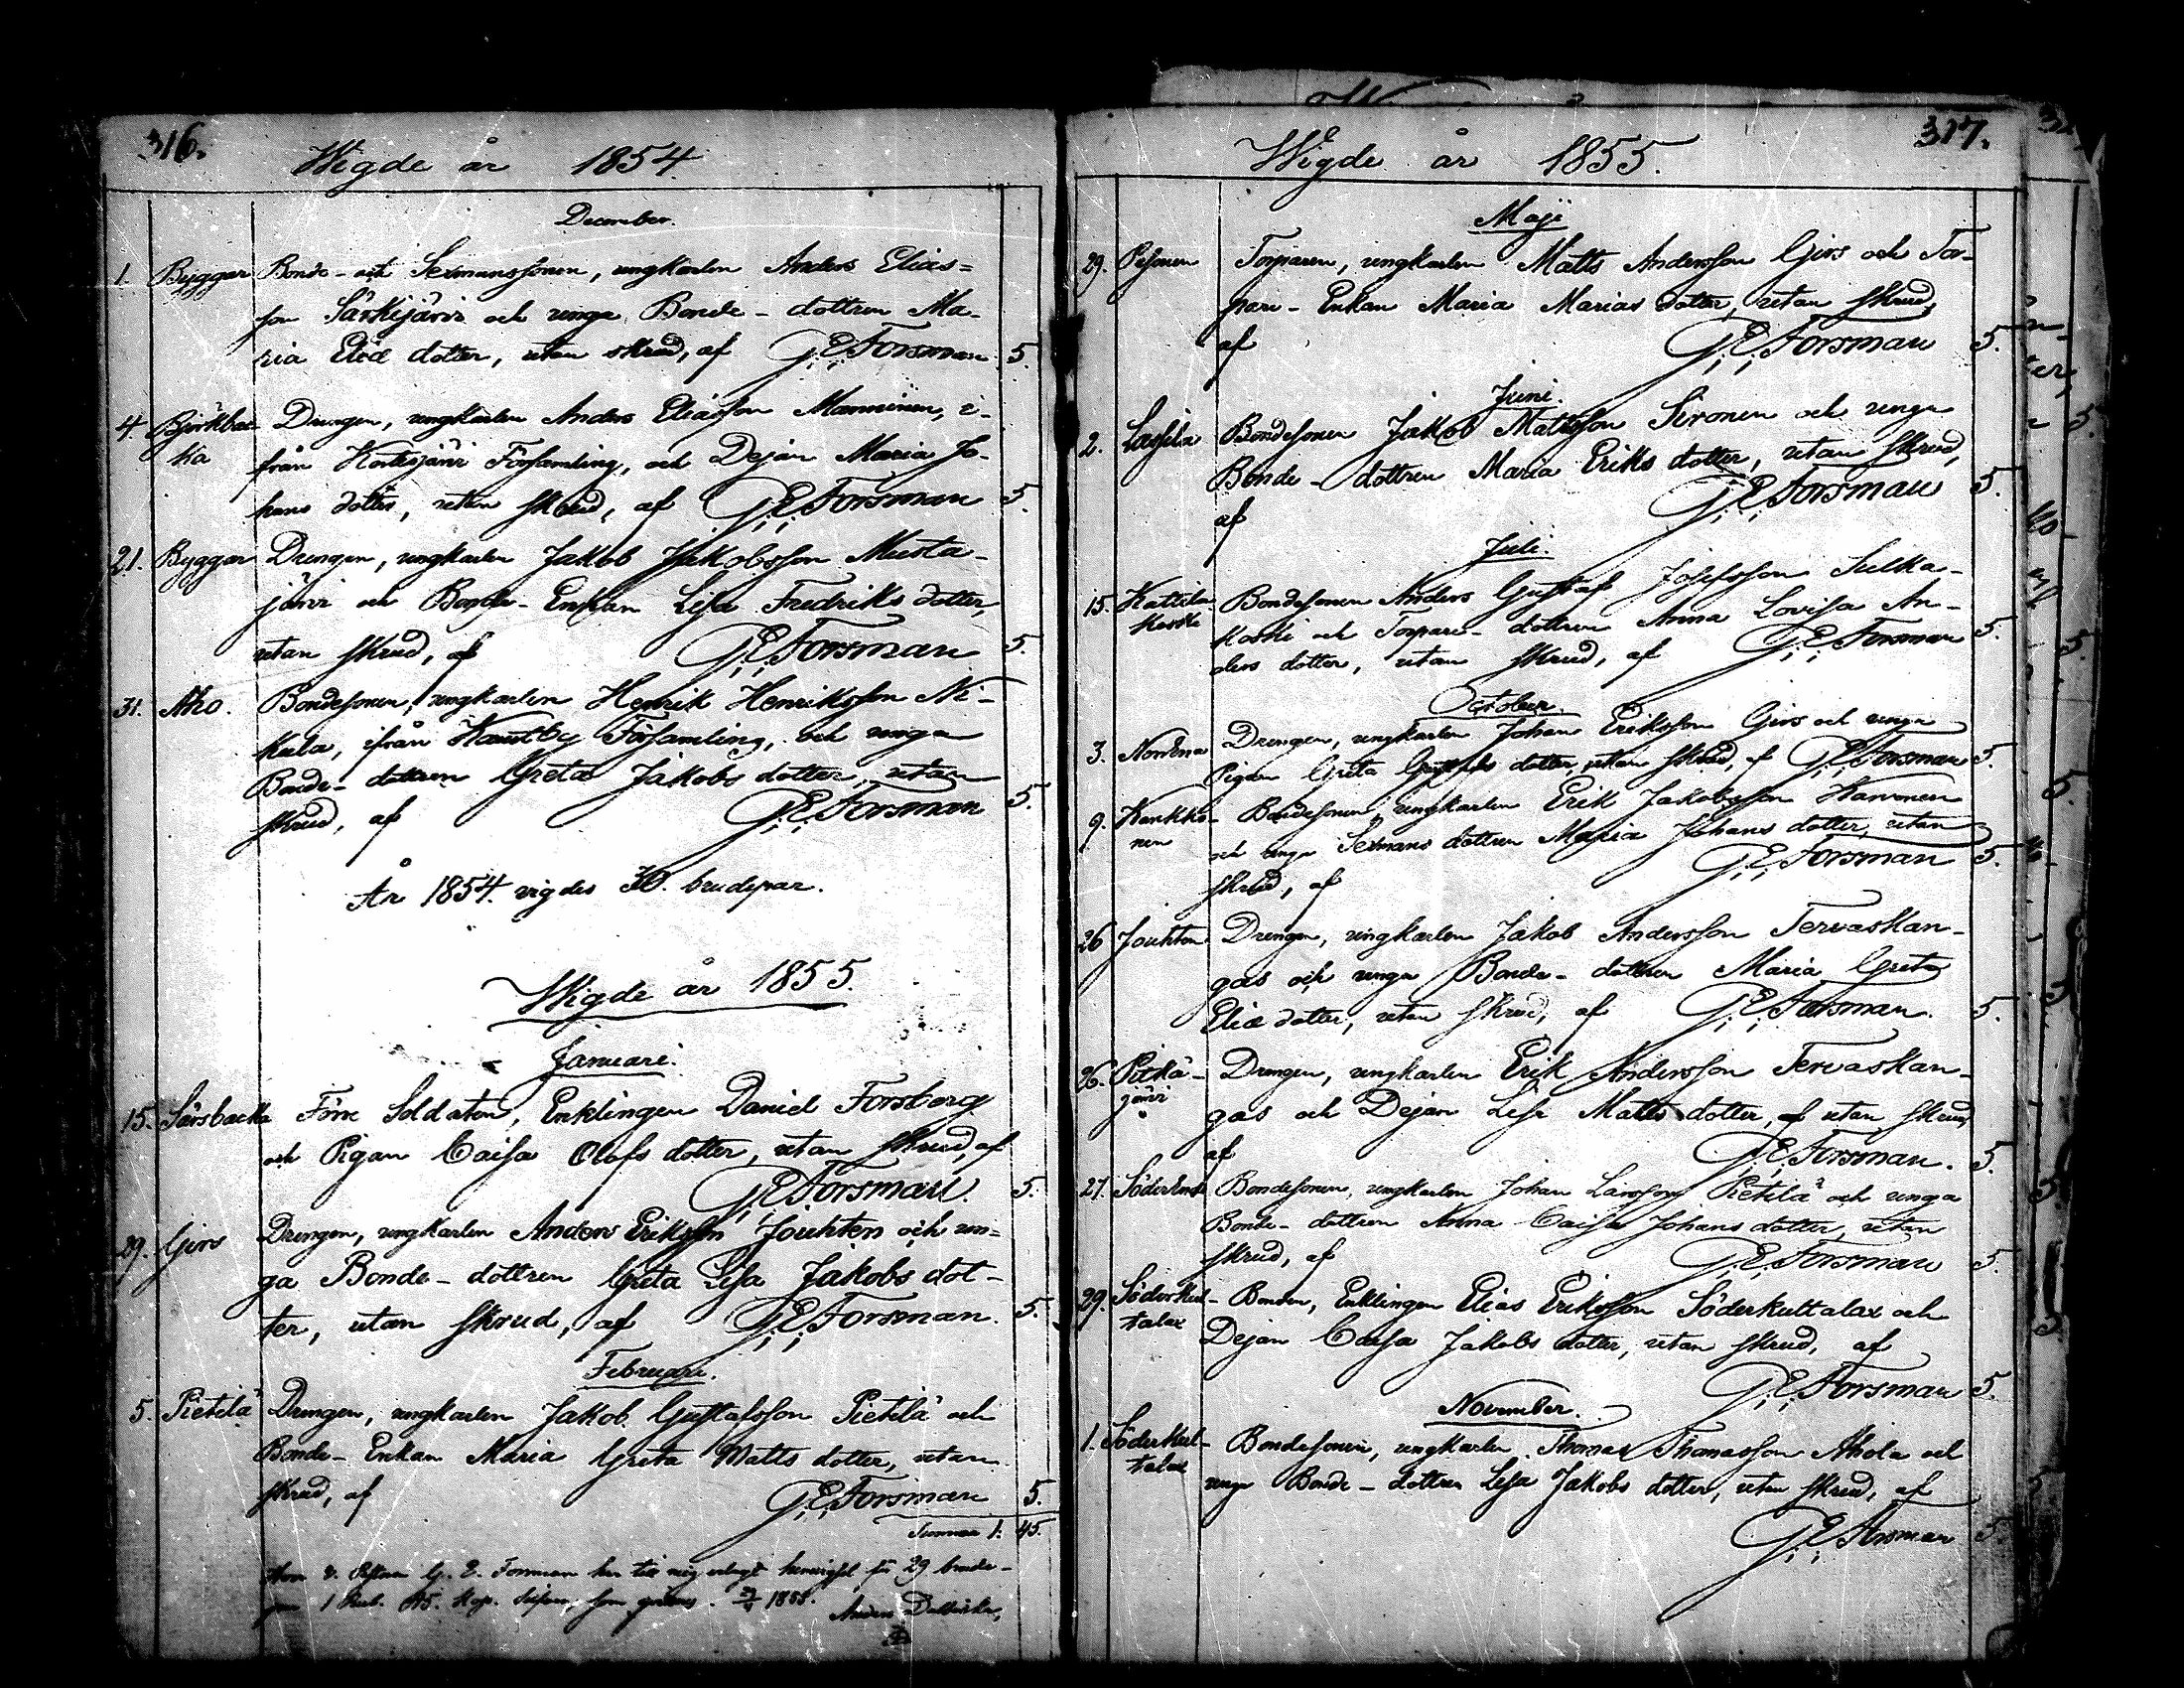 316.
Wigde år 1854.
December.
1. Byggar Bonde- och Sexmanssonen, ungkarlen Anders Elias=
son Särkijärvi och unga Bonde- dottren Ma-
ria Eliæ dotter, utan skrud, af G.E. Forsman. 5.
4. Björkbac- Drengen, ungkarlen Anders Eliasson Manninen, i-
ka från Kortesjärvi Församling, och Dejan Maria Jo-
hans dotter, utan skrud, af G.E. Forsman 5.
21. Byggar Drengen, ungkarlen Jakob Jakobsson Musta-
järvi och Bonde- Enkan Lisa Fredriks dotter,
utan skrud, af G.E. Forsman 5.
31. Aho. Bondesonen, ungkarlen Henrik Henriksson Ni-
kula, ifrån Kauhby Församling, och unga
Bonde- dottren Greta Jakobs dotter, utan
skrud, af G.E. Forsman 5.
År 1854. vigdes 30. brudepar.
Wigde år 1855.
Januari.
15. Särsbacka Förre Soldaten, Enklingen Daniel Forsberg
och Pigan Caisa Olofs dotter, utan skrud, af
G.E. Forsman. 5.
29. Girs Drengen, ungkarlen Anders Eriksson Jouhten och un=
ga Bonde- dottren Greta Lisa Jakobs dot-
ter, utan skrud, af G.E. Forsman. 5.
Februari.
5. Pietilä Drengen, ungkarlen Jakob Gustafsson Pietilä och
Bonde- Enkan Maria Greta Matts dotter, utan
skrud, af G.E. Forsman 5.
Summa 1: 45.
G. E. Forsman har till mig 29 brude-
1 Rub. 45. Kop. Silfver, som 1855. Anders
317.
Wigde år 1855.
Maji
29. Pesonen Torparen, ungkarlen Matts Andersson Girs och Tor-
pare- Enkan Maria Marias dotter, utan skrud,
af G.E. Forsman 5.
Juni.
2. Lassila Bondesonen Jakob Mattsson Sironen och unga
Bonde- dottren Maria Eriks dotter, utan skrud,
af G.E. Forsman 5.
Juli.
15. Kattila- Bondesonen Anders Gustaf Josefsson Sulka-
koski koski och Torpare- dottren Anna Lovisa An-
ders dotter, utan skrud, af G.E. Forsman 5.
October.
3. Nordena Drengen, ungkarlen Johan Eriksson Girs och unga
Pigan Greta Gustafs dotter, utan skrud, af G.E. Forsman 5.
9. Kankko- Bondesonen, ungkarlen Erik Jakobsson Harvonen
nen och unga Sexmans dottren Maria Johans dotter, utan
skrud, af G.E. Forsman 5.
26 Jouhten Drengen, ungkarlen Jakob Andersson Tervaskan-
gas och unga Bonde- dottren Maria Greta
Eliæ dotter, utan skrud, af G.E. Forsman. 5.
26. Pitkä- Drengen, ungkarlen Erik Andersson Tervaskan-
järvi gas och Dejan Lisa Matts dotter, af utan skrud,
af G.E. Forsman. 5.
27. Bondesonen, ungkarlen Johan Larsson Pietilä och unga
Bonde- dottren Anna Caisa Johans dotter, utan
skrud, af G.E. Forsman 5.
29. Söderkul- Bonden, Enklingen Elias Eriksson Söderkultalax och
talax Dejan Caisa Jakobs dotter, utan skrud, af
G.E. Forsman 5.
November.
1. Söderkul- Bondesonen, ungkarlen Thomas Thomasson Ahola och
talax unga Bonde- dottren Lisa Jakobs dotter, utan skrud, af
G.E. Forsman 5.